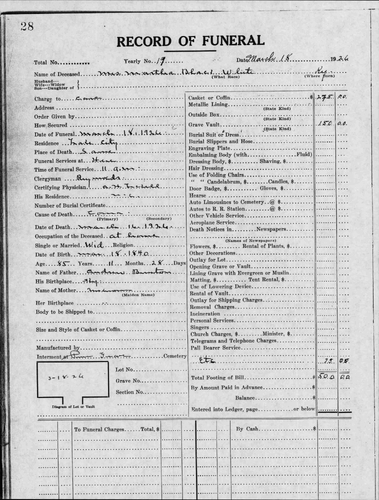 28
RECORD OF FUNERAL
Total No. Yearly No. 19 Date March 18 1926
Name of Deceased Mrs Martha White
(What Race) (Where Born)
Husband—
Wife—Widow
Son—Daughter of
Charge to
Address
Order Given by
How Secured
Date of Funeral March 18, 1926
Residence City
Place of Death Same
Funeral Services at
Time of Funeral Service 11 a.m.
Clergyman
Certifying Physician
His Residence
Number of Burial Certificate
Cause of Death
(Primary) (Secondary)
Date of Death March 16, 1926
Occupation of the Deceased at home
Single or Married Wid Religion
Date of Birth 18-1840
Age 85 Years 11 Months 28 Days
Name of Father Andrew Burton
His Birthplace Ky.
Name of Mother
(Maiden Name)
Her Birthplace
Body to be Shipped to
Size and Style of Casket or Coffin
Manufactured by
Interment at Cemetery
3-18-26
Lot No.
Grave No.
Section No.
Diagram of Lot or Vault
Casket or Coffin $ 275 00
Metallic Lining
(State Kind)
Outside Box
(State Kind)
Grave Vault 150 00
(State Kind)
Burial Suit or Dress
Burial Slippers and Hose
Engraving Plate
Embalming Body (with Fluid)
Dressing Body, $ Shaving, $
Hair Dressing
Use of Folding Chairs
" " Candelabrum, $ Candles, $
Door Badge, $ Gloves, $
Hearse
Auto Limousines to Cemetery @ $
Autos to R. R. Station @ $
Other Vehicle Service
Aeroplane Service
Death Notices in Newspapers
(Names of Newspapers)
Flowers, $ Rental of Plants, $
Other Decorations
Outlay for Lot
Opening Grave or Vault
Lining Grave with Evergreen or Muslin
Matting, $ Tent Rental, $
Use of Lowering Device
Rental of Vault
Outlay for Shipping Charges
Removal Charges
Incineration
Personal Services
Singers
Church Charges, $ Minister, $
Telegrams and Telephone Charges
Pall Bearer Service
Etc 75 00
Total Footing of Bill $ 500 00
By Amount Paid in Advance $
Balance $
Entered into Ledger, page or below
To Funeral Charges Total, $ By Cash $